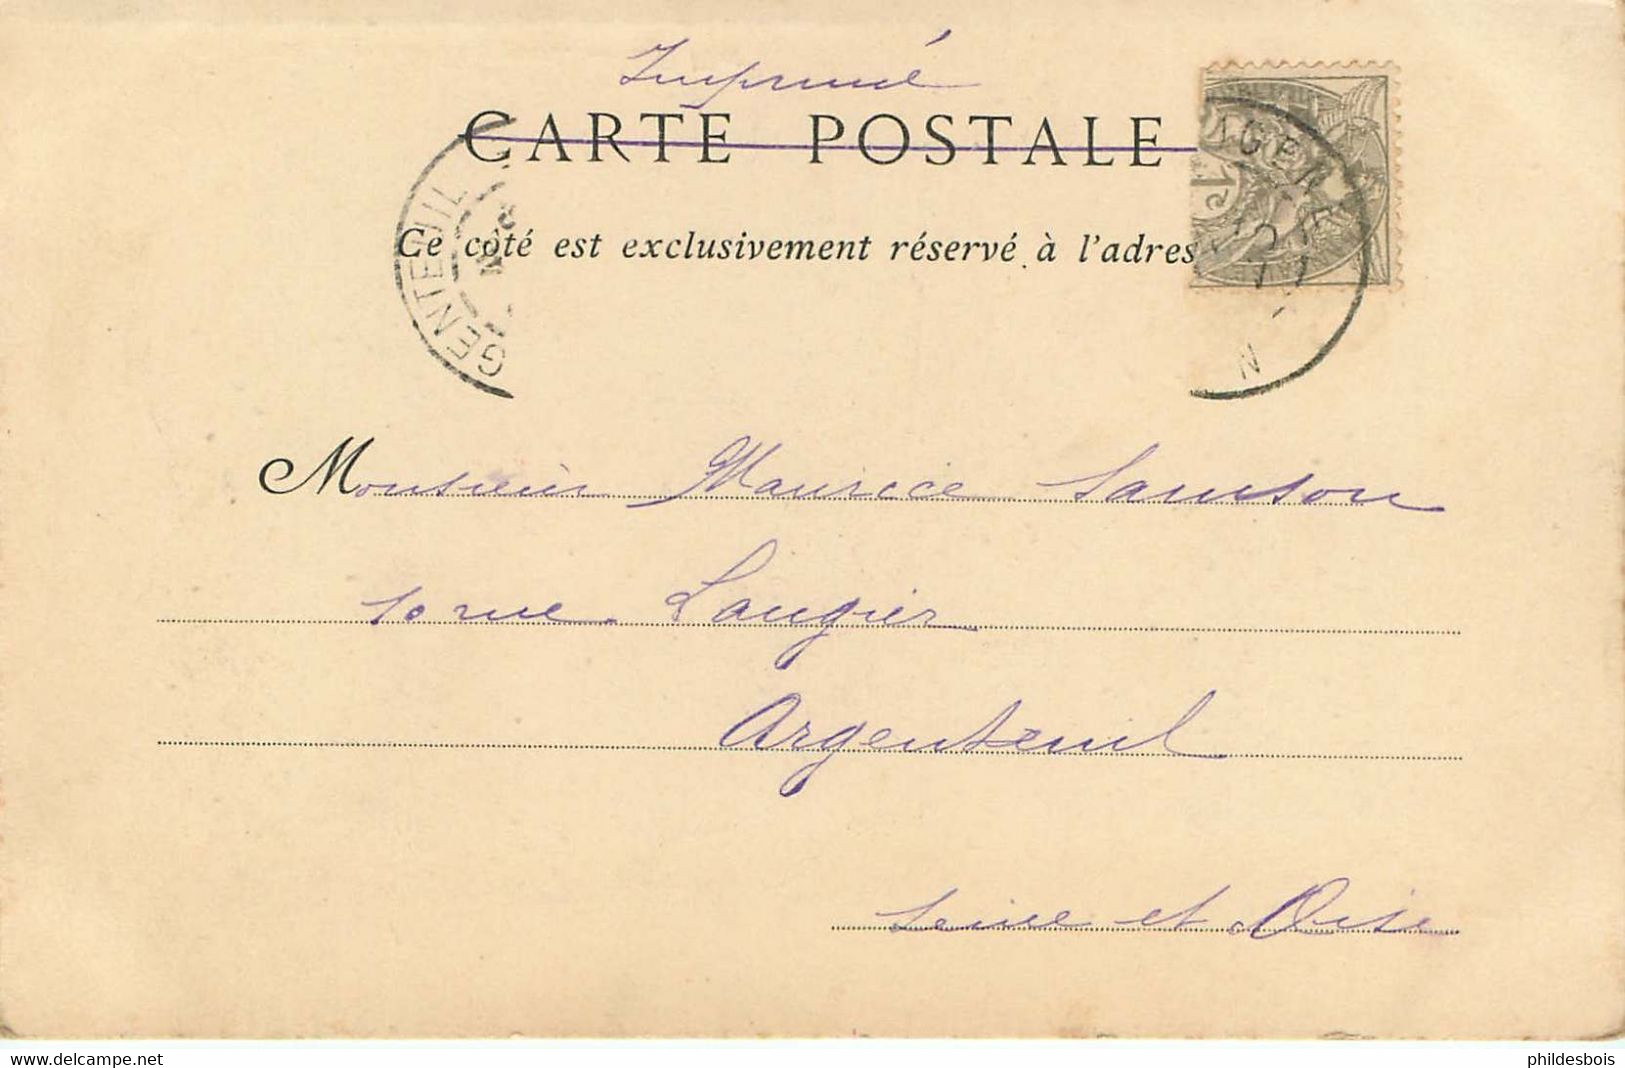 Imprimé
CARTE POSTALE
Ce côté est exclusivement réservé à l'adres
GENTEUIL
Monsieur Maurice Samson
10 rue Laugier
Argenteuil
Seine et Oise
www.delcampe.net
phildesbois